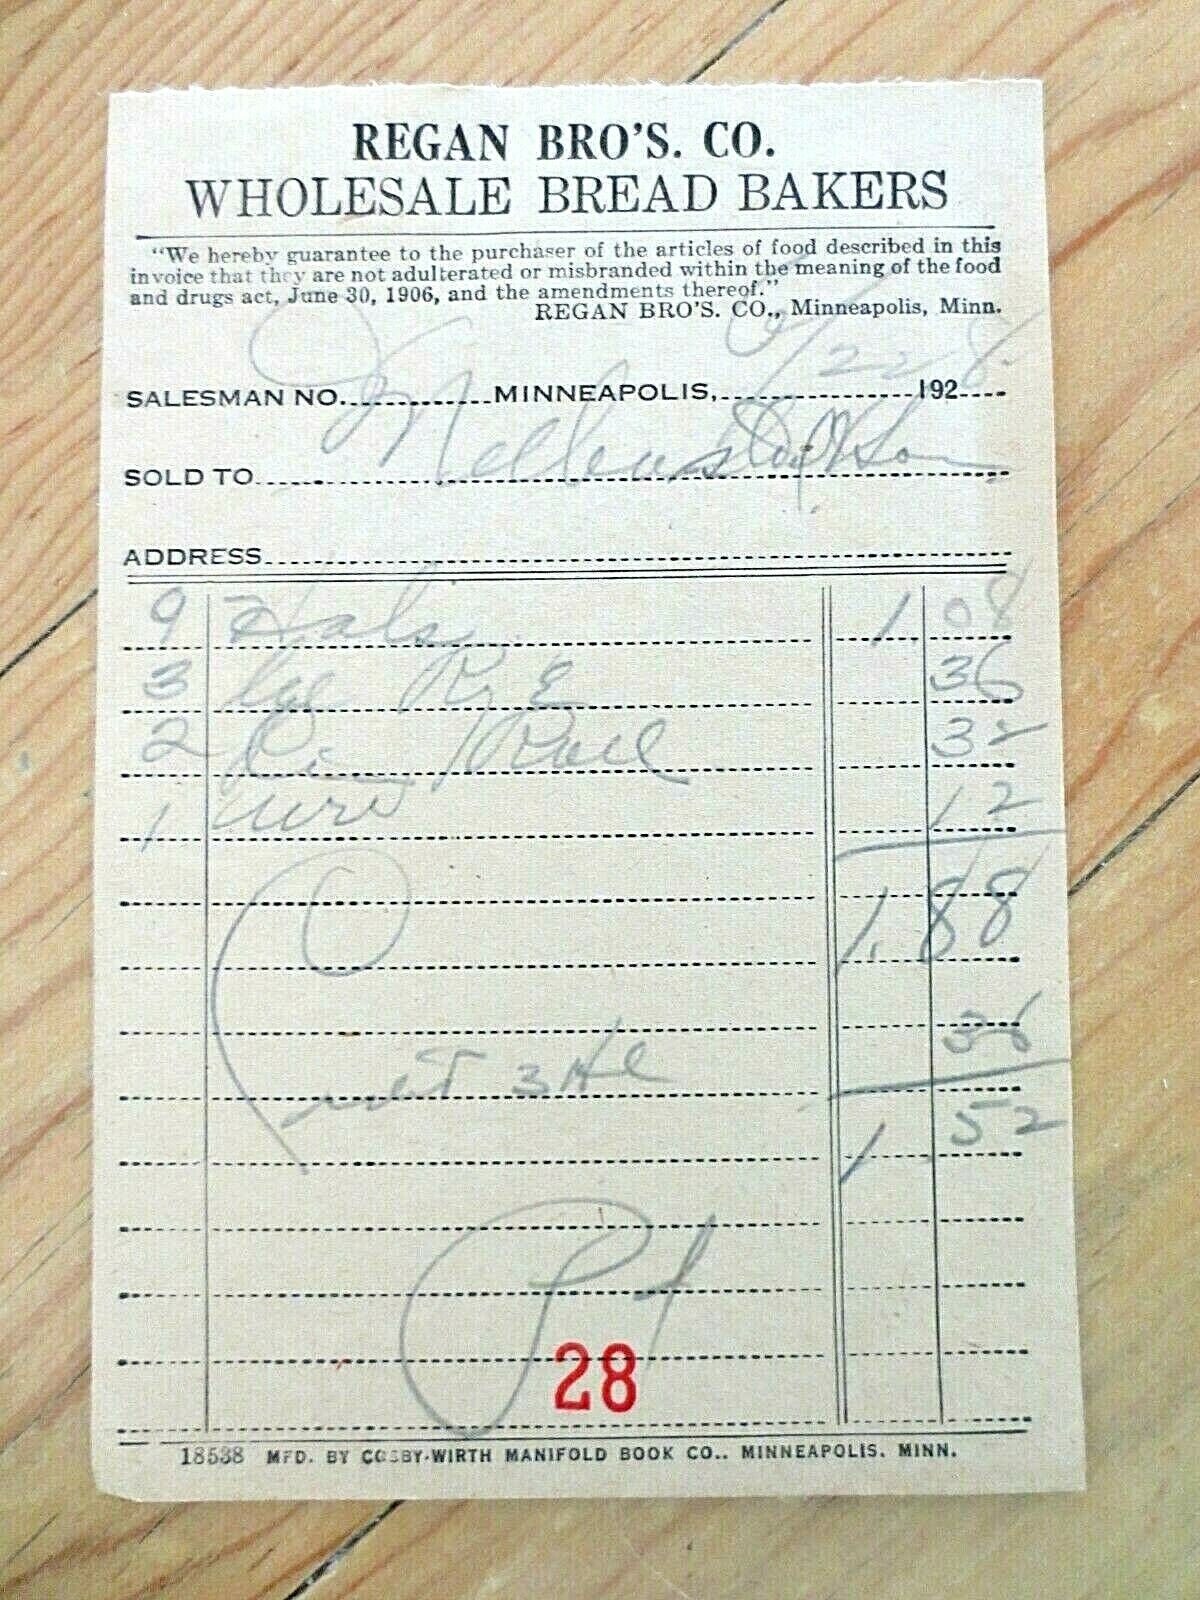 REGAN BRO'S. CO.
WHOLESALE BREAD BAKERS
"We hereby guarantee to the purchaser of the articles of food described in this
invoice that they are not adulterated or misbranded within the meaning of the food
and drugs act, June 30, 1906, and the amendments thereof."
REGAN BRO'S. CO., Minneapolis, Minn.
SALESMAN NO. MINNEAPOLIS, 192 8
SOLD TO
ADDRESS
9 1.08
3 36
2 Roll 32
1 12
1.88
Credit 3 36
1 52
28
18538 MFD. BY COSBY-WIRTH MANIFOLD BOOK CO., MINNEAPOLIS. MINN.